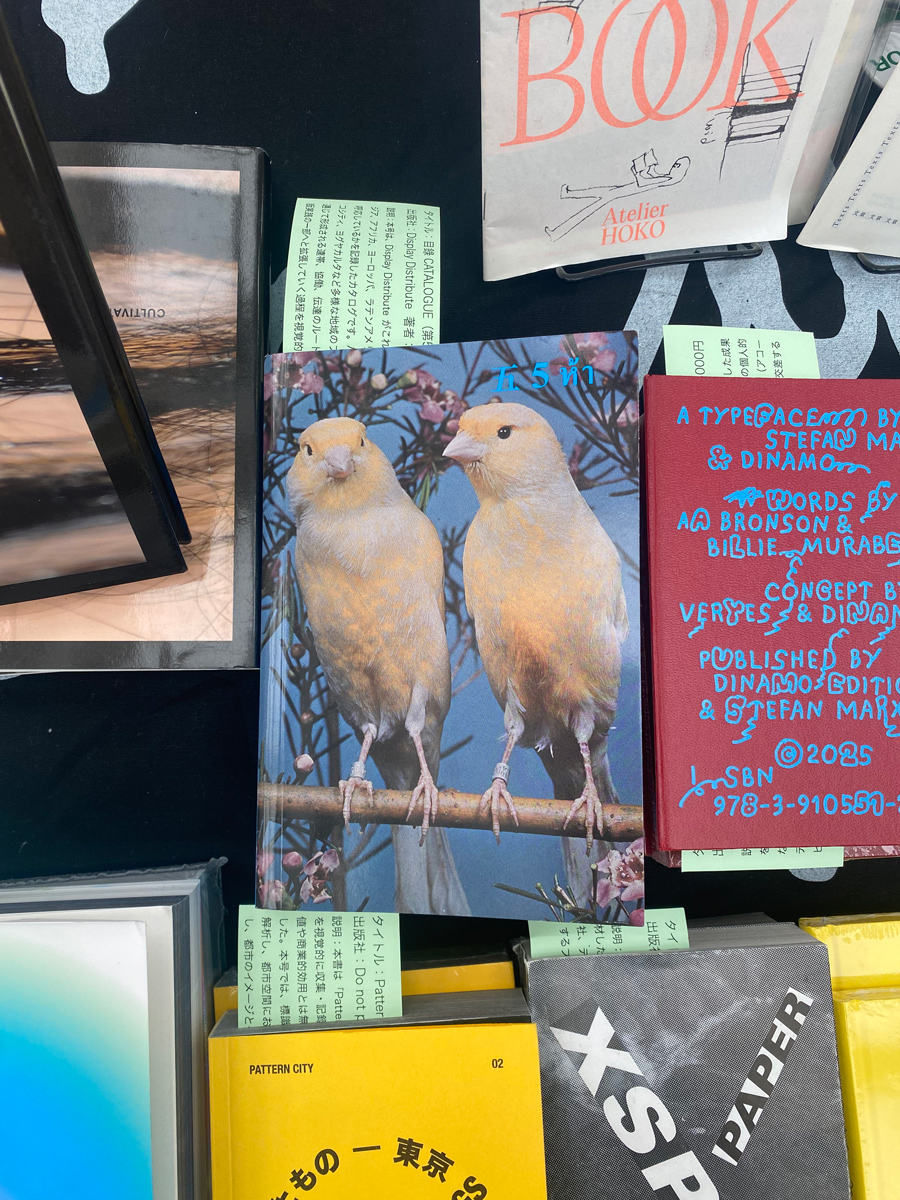 BOOK
Atelier
HOKO
Texts Texts Texts Texts
CULTIVA
タイトル：目録 CATALOGUE（第5
出版社：Display Distribute 著者：
説明：本号は、Display Distribute がこれ
ジア、アフリカ、ヨーロッパ、ラテンアメ
コシティ、ヨグヤカルタなど多様な地域の
通じて形成される連帯、協働、伝達のルー
版実践の一部へと拡張していく過程を視覚的
5 ห้า
000円
した成果
の個人的
（アコー
交差する
A TYPEFACE BY
STEFAN MA
& DINAMO
WORDS BY
AA BRONSON &
BILLIE MURABE
CONCEPT BY
VERTES & DINAM
PUBLISHED BY
DINAMO EDITIO
& STEFAN MARX
©2025
ISBN
978-3-910551-
タイトル：Patter
出版社：Do not p
説明：本書は「Patte
を視覚的に収集・記録
値や商業的効用とは無
した。本号では、標識
解析し、都市空間にお
し、都市のイメージと
タイ
出版社
説明：
材した
社、デ
するフ
PATTERN CITY
02
もの — 東京
XSP
PAPER